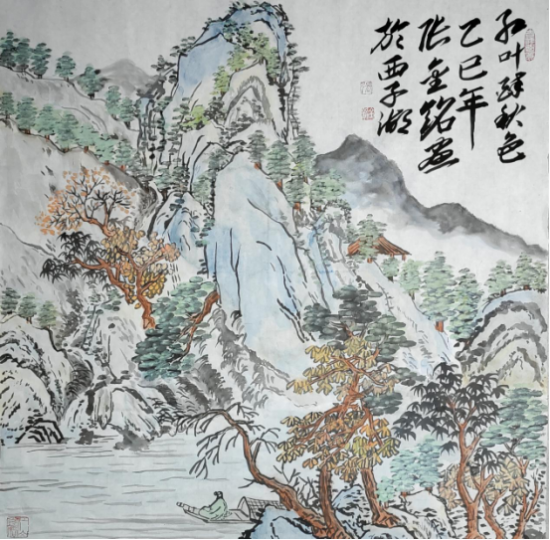 红叶醉秋色
乙巳年
张金铭画
於西子湖